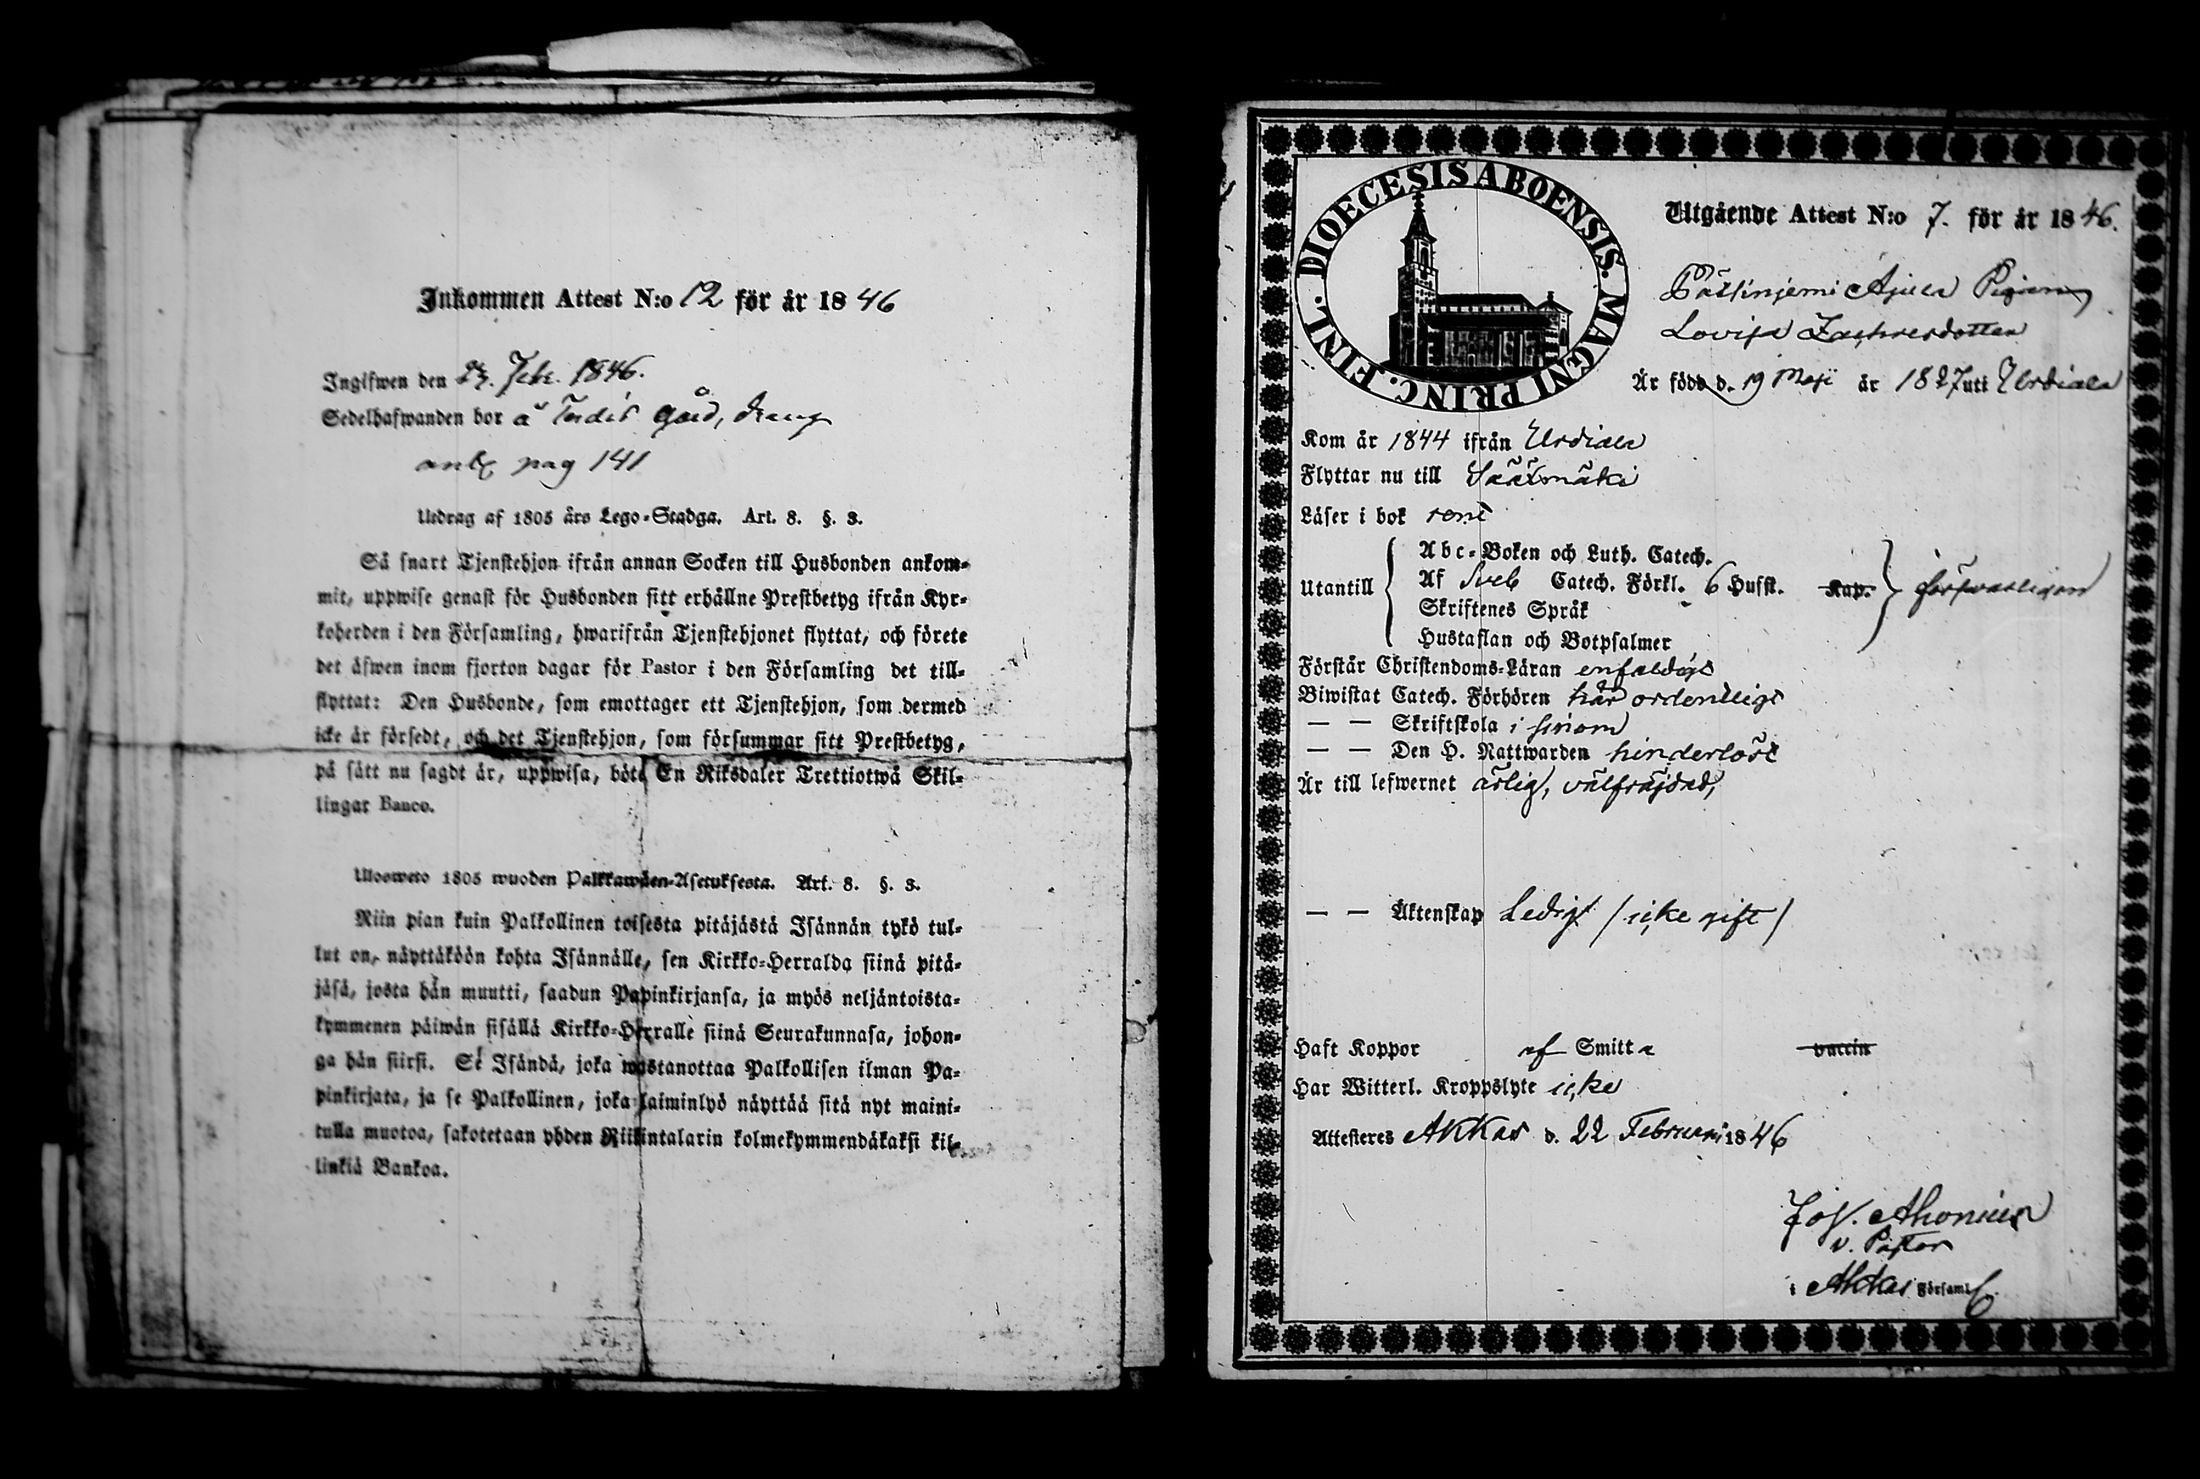 Inkommen Attest N:o 12 för år 1846
Ingifwen den Febr. 1846.
Sedelhafwanden bor å gård, dräng
antx pag 141
Utdrag af 1805 års Lego-Stadga. Art. 8. §. 3.
Så snart Tjenstehjon ifrån annan Socken till Husbonden ankom-
mit, uppwise genast för Husbonden sitt erhållne Prestbetyg ifrån Kyr-
koherden i den Församling, hwarifrån Tjenstehjonet flyttat, och förete
det äfwen inom fjorton dagar för Pastor i den Församling det till-
flyttat: Den Husbonde, som emottager ett Tjenstehjon, som dermed
icke är försedt, och det Tjenstehjon, som försummar sitt Prestbetyg,
på sätt nu sagdt är, uppwisa, böte En Riksdaler Trettiotwå Skil-
lingar Banco.
Ulosweto 1805 wuoden Palkkawäen-Asetuksesta. Art. 8. §. 3.
Niin pian kuin Palkollinen toisesta pitäjästä Isännän tykö tul-
lut on, näyttäköön kohta Isännälle, sen Kirkko-Herralda siinä pitä-
jäsä, josta hän muutti, saadun Papinkirjansa, ja myös neljäntoista-
kymmenen päiwän sisällä Kirkko-Herralle siinä Seurakunnasa, johon-
ga hän siirsi. Se Isändä, joka wastanottaa Palkollisen ilman Pa-
pinkirjata, ja se Palkollinen, joka laiminlyö näyttää sitä nyt maini-
tulla muotoa, sakotetaan yhden Riikintalarin kolmekymmendäkaksi kil-
linkiä Bankoa.
DIOECESIS ABOENSIS. MAGNI PRINC. FINL.
Utgående Attest N:o 7. för år 1846.
Ajuela Pigan
Lovisa Zachrisdotter
Är född d. 19 Maji år 1827 uti Urdiala
Kom år 1844 ifrån Urdiala
Flyttar nu till Sääxmäki
Läser i bok rent
Utantill
Abc-Boken och Luth. Catech.
Af Sveb Catech. Förkl. 6 Hufst. Kap. försvarligen
Skriftenes Språk
Hustaflan och Botpsalmer
Förstår Christendoms-Läran enfaldigt
Biwistat Catech. Förhören här ordentligt
— — Skriftskola i sinom
— — Den H. Nattwarden hinderlöst
Är till lefwernet ärlig, välfräjdad,
— — Äktenskap Ledigt /icke gift/
Haft Koppor af Smitta vaccin
Har Witterl. Kroppslyte icke
Attesteres Akkas d. 22 Februari 1846
Jos. Ahonius
v. Pastor
i Akkas Församl